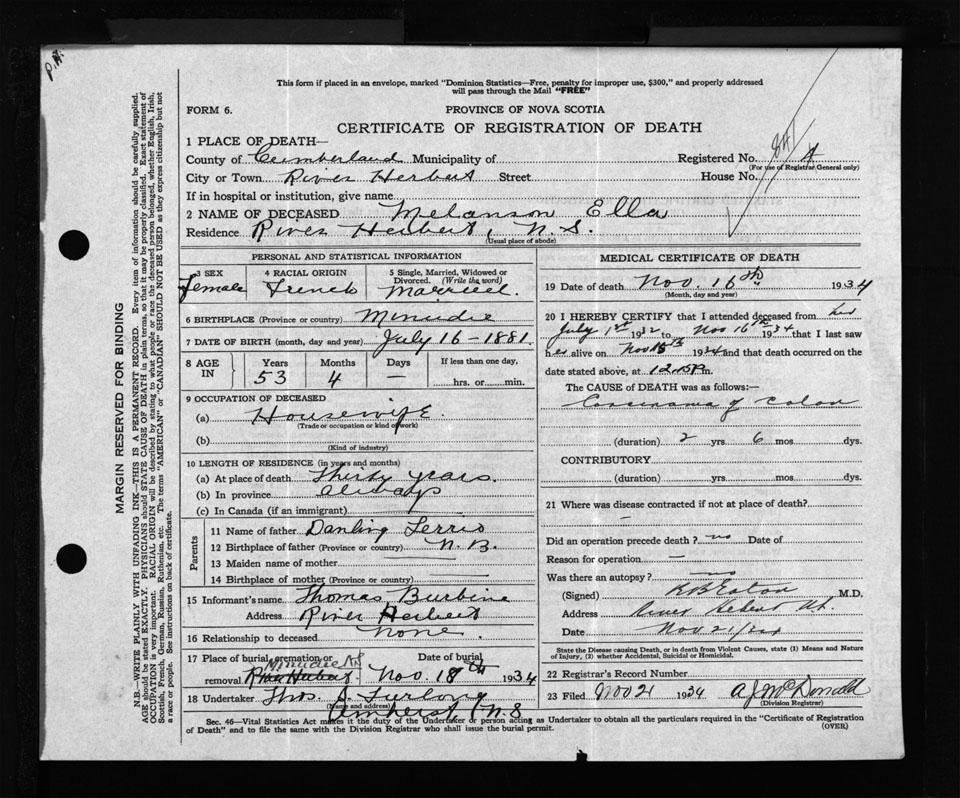 P.H.
This form if placed in an envelope, marked "Dominion Statistics—Free, penalty for improper use, $300," and properly addressed
will pass through the Mail "FREE"
FORM 6.
PROVINCE OF NOVA SCOTIA
CERTIFICATE OF REGISTRATION OF DEATH
1 PLACE OF DEATH—
County of Cumberland Municipality of Registered No. 4
(For use of Registrar General only)
City or Town River Herbert Street House No.
If in hospital or institution, give name
2 NAME OF DECEASED Melanson Ella
Residence River Herbert, N.S.
(Usual place of abode)
PERSONAL AND STATISTICAL INFORMATION
3 SEX Female
4 RACIAL ORIGIN French
5 Single, Married, Widowed or Divorced. (Write the word) Married.
6 BIRTHPLACE (Province or country) Minudie
7 DATE OF BIRTH (month, day and year) July 16-1881
8 AGE IN Years 53 Months 4 Days — If less than one day, hrs. or min.
9 OCCUPATION OF DECEASED
(a) Housewife
(Trade or occupation or kind of work)
(b)
(Kind of industry)
10 LENGTH OF RESIDENCE (in years and months)
(a) At place of death Thirty years.
(b) In province always
(c) In Canada (if an immigrant)
Parents
11 Name of father Danling Terrio
12 Birthplace of father (Province or country) N.B.
13 Maiden name of mother —
14 Birthplace of mother (Province or country) —
15 Informant's name Thomas Burbine
Address River Herbert
16 Relationship to deceased none.
17 Place of burial, cremation or removal River Herbert Minudie NS Date of burial Nov. 18th 1934
18 Undertaker Thos. S. Furlong
(Name and address)
Amherst N.S
MEDICAL CERTIFICATE OF DEATH
19 Date of death Nov. 16th 1934
(Month, day and year)
20 I HEREBY CERTIFY that I attended deceased from her
July 1st 1932 to Nov 16th 1934 that I last saw
her alive on Nov 15th 1934 and that death occurred on the
date stated above, at 12.15 P.m.
The CAUSE OF DEATH was as follows:—
Carcinoma of colon
(duration) 2 yrs 6 mos dys.
CONTRIBUTORY
(duration) yrs. mos. dys.
21 Where was disease contracted if not at place of death?
—
Did an operation precede death? no Date of
Reason for operation —
Was there an autopsy? no
(Signed) K B Eaton M.D.
Address River Hebert N.S.
Date Nov 21/34
State the Disease Causing Death, or in death from Violent Causes, state (1) Means and Nature
of Injury, (2) whether Accidental, Suicidal or Homicidal.
22 Registrar's Record Number
23 Filed Nov 21 1934 A J McDonald
(Division Registrar)
Sec. 46—Vital Statistics Act makes it the duty of the Undertaker or person acting as Undertaker to obtain all the particulars required in the "Certificate of Registration
of Death" and to file the same with the Division Registrar who shall issue the burial permit.
(OVER)
MARGIN RESERVED FOR BINDING
N.B.—WRITE PLAINLY WITH UNFADING INK—THIS IS A PERMANENT RECORD. Every item of information should be carefully supplied.
AGE should be stated EXACTLY. PHYSICIANS should STATE CAUSE OF DEATH in plain terms, so that it may be properly classified. Exact statement of
OCCUPATION is very important. RACIAL ORIGIN will be described by stating to what people or race the deceased person belonged, whether English, Irish,
Scottish, French, German, Russian, Ruthenian, etc. The terms "AMERICAN" or "CANADIAN" SHOULD NOT BE USED as they express citizenship but not
a race or people. See instructions on back of certificate.